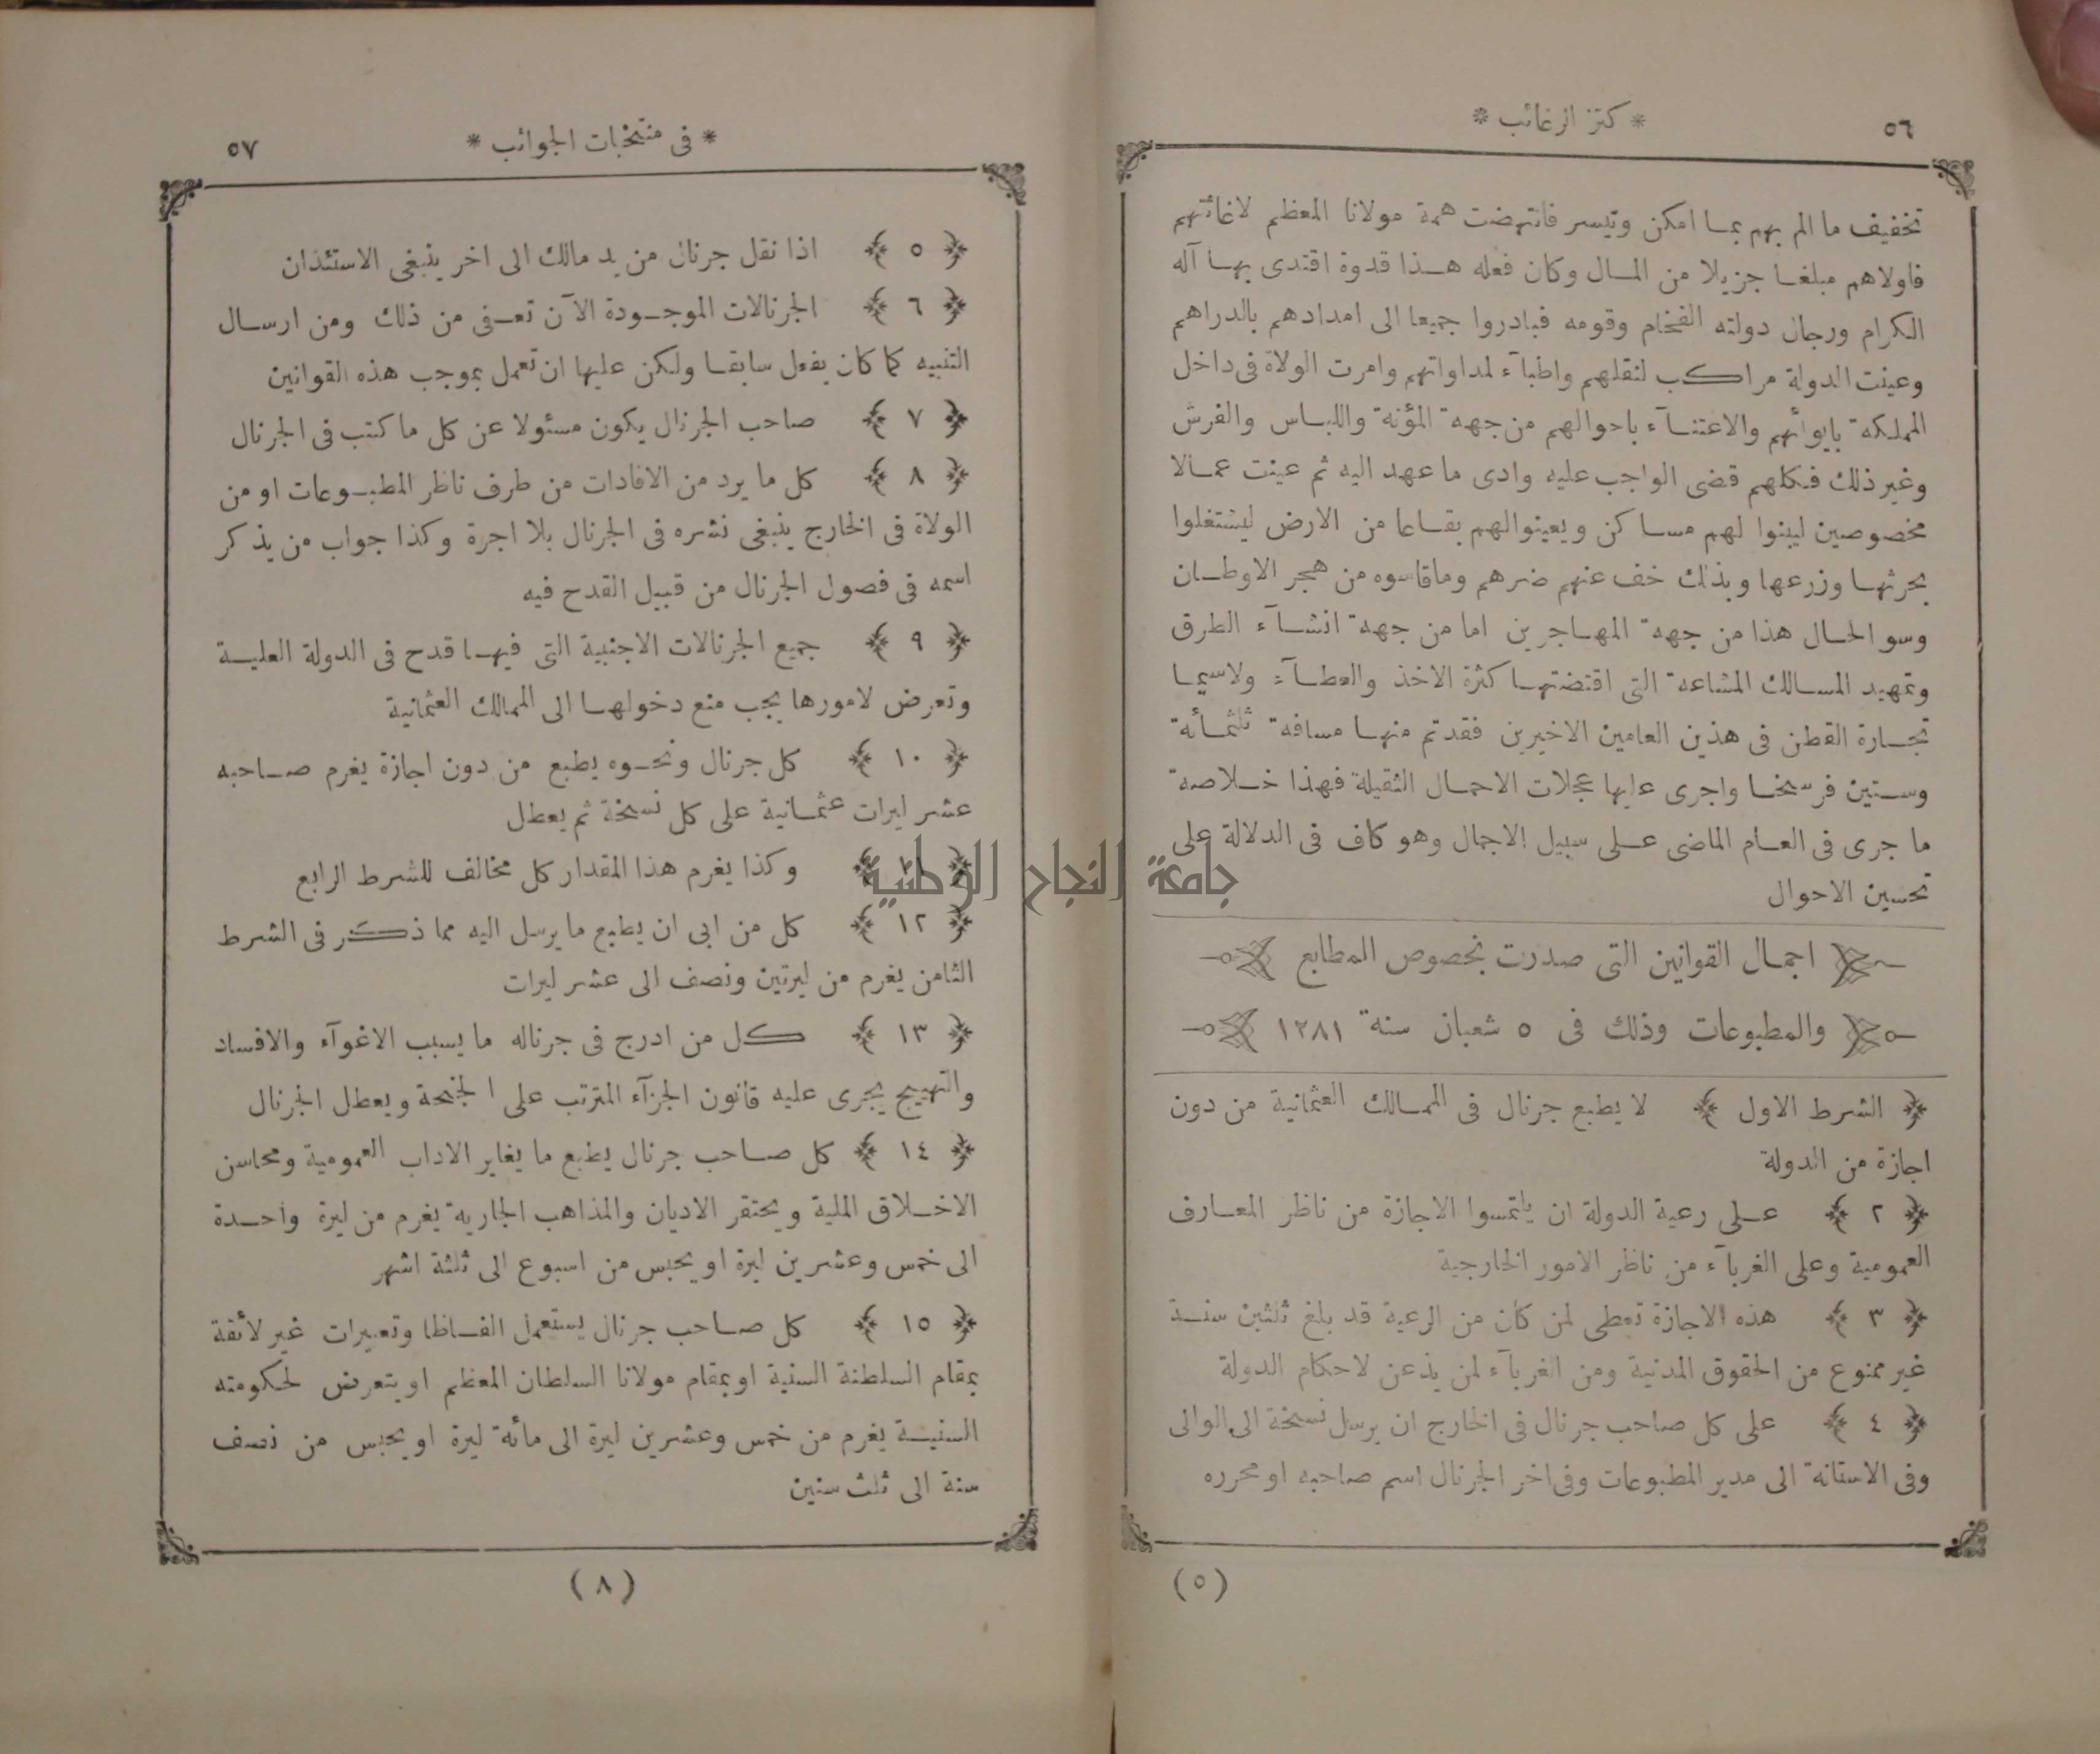 ٥٦
* كنز الرغائب *
تخفيف ما الم بهم بما امكن وتيسر فانتهضت همة مولانا المعظم لاغاثتهم
فاولاهم مبلغا جزيلا من المال وكان فعله هذا قدوة اقتدى بها آله
الكرام ورجال دولته الفخام وقومه فبادروا جميعا الى امدادهم بالدراهم
وعينت الدولة مراكب لنقلهم واطبآء لمداواتهم وامرت الولاة فى داخل
المملكة بايوائهم والاعتنآء باحوالهم من جهة المؤنة واللباس والفرش
وغير ذلك فكلهم قضى الواجب عليه وادى ما عهد اليه ثم عينت عمالا
مخصوصين ليبنوا لهم مساكن ويعينوا لهم بقاعا من الارض ليشتغلوا
بحرثها وزرعها وبذلك خف عنهم ضرهم وماقاسوه من هجر الاوطان
وسو الحال هذا من جهة المهاجرين اما من جهة انشآء الطرق
وتمهيد المسالك المشاعة التى اقتضتها كثرة الاخذ والعطآء ولاسيما
تجارة القطن فى هذين العامين الاخيرين فقد تم منها مسافة ثلثمائة
وستين فرسخا واجرى عليها عجلات الاحمال الثقيلة فهذا خلاصة
ما جرى فى العام الماضى على سبيل الاجمال وهو كاف فى الدلالة على
تحسين الاحوال
اجمال القوانين التى صدرت بخصوص المطابع
والمطبوعات وذلك فى ٥ شعبان سنة ١٢٨١
﴿ الشرط الاول ﴾ لا يطبع جرنال فى الممالك العثمانية من دون
اجازة من الدولة
﴿ ٢ ﴾ على رعية الدولة ان يلتمسوا الاجازة من ناظر المعارف
العمومية وعلى الغربآء من ناظر الامور الخارجية
﴿ ٣ ﴾ هذه الاجازة تعطى لمن كان من الرعية قد بلغ ثلثين سنة
غير ممنوع من الحقوق المدنية ومن الغربآء لمن يذعن لاحكام الدولة
﴿ ٤ ﴾ على كل صاحب جرنال فى الخارج ان يرسل نسخة الى الوالى
وفى الاستانة الى مدير المطبوعات وفى اخر الجرنال اسم صاحبه او محرره
(٥)
* فى منتخبات الجوائب *
٥٧
﴿ ٥ ﴾ اذا نقل جرنال من يد مالك الى اخر ينبغى الاستئذان
﴿ ٦ ﴾ الجرنالات الموجودة الآن تعفى من ذلك ومن ارسال
التنبيه كما كان يفعل سابقا ولكن عليها ان تعمل بموجب هذه القوانين
﴿ ٧ ﴾ صاحب الجرنال يكون مسئولا عن كل ما كتب فى الجرنال
﴿ ٨ ﴾ كل ما يرد من الافادات من طرف ناظر المطبوعات او من
الولاة فى الخارج ينبغى نشره فى الجرنال بلا اجرة وكذا جواب من يذكر
اسمه فى فصول الجرنال من قبيل القدح فيه
﴿ ٩ ﴾ جميع الجرنالات الاجنبية التى فيها قدح فى الدولة العلية
وتعرض لامورها يجب منع دخولها الى الممالك العثمانية
﴿ ١٠ ﴾ كل جرنال ونحوه يطبع من دون اجازة يغرم صاحبه
عشر ليرات عثمانية على كل نسخة ثم يعطل
﴿ ١١ ﴾ وكذا يغرم هذا المقدار كل مخالف للشرط الرابع
جامعة النجاح الوطنية
﴿ ١٢ ﴾ كل من ابى ان يطبع ما يرسل اليه مما ذكر فى الشرط
الثامن يغرم من ليرتين ونصف الى عشر ليرات
﴿ ١٣ ﴾ كل من ادرج فى جرناله ما يسبب الاغوآء والافساد
والتهييج يجرى عليه قانون الجزآء المترتب على الجنحة ويعطل الجرنال
﴿ ١٤ ﴾ كل صاحب جرنال يطبع ما يغاير الاداب العمومية ومحاسن
الاخلاق الملية ويحتقر الاديان والمذاهب الجارية يغرم من ليرة واحدة
الى خمس وعشرين ليرة او يحبس من اسبوع الى ثلثة اشهر
﴿ ١٥ ﴾ كل صاحب جرنال يستعمل الفاظا وتعبيرات غير لائقة
بمقام السلطنة السنية او بمقام مولانا السلطان المعظم او يتعرض لحكومته
السنية يغرم من خمس وعشرين ليرة الى مائة ليرة او يحبس من نصف
سنة الى ثلث سنين
(٨)